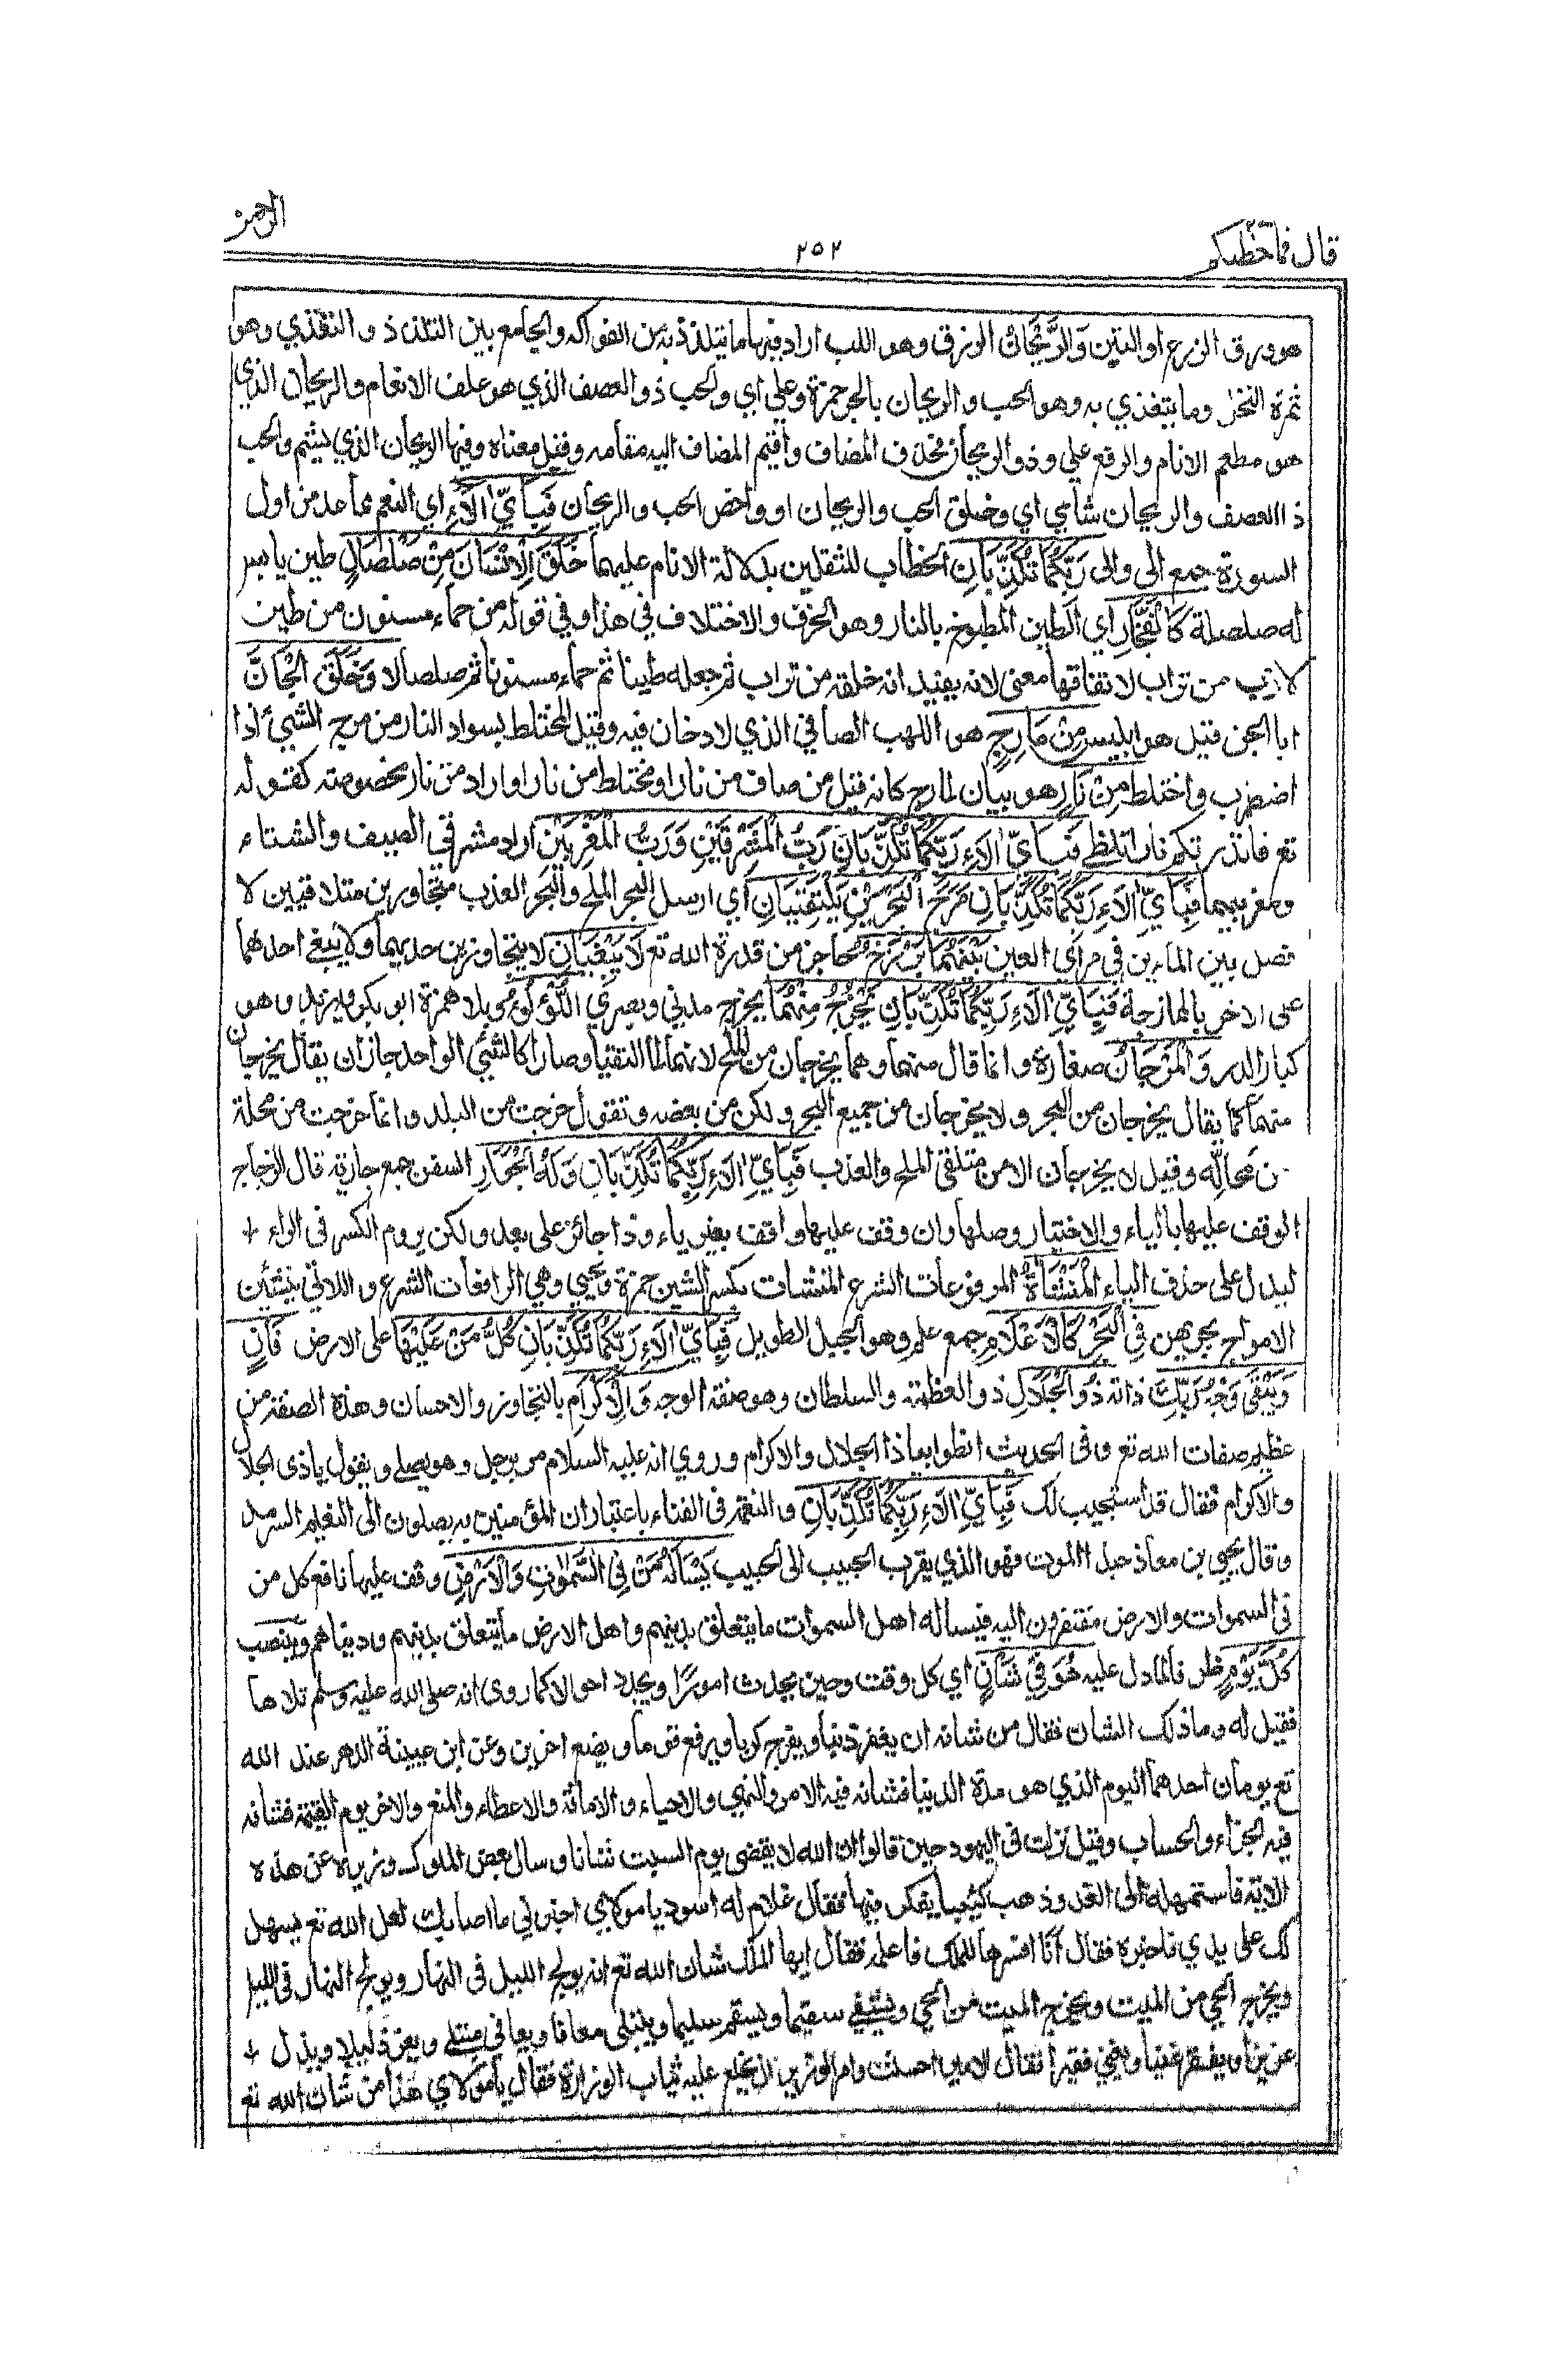 الرحمن
قال فما خطبكم
٢٥٢
هو ورق الزرع او التبن وَالرَّيْحَانُ الرزق وهو اللب اراد فيها ما يتلذذ به من الفواكه والجامع بين التلذذ والتغذي وهو
ثمرة النخل وما يتغذي به وهو الحب والريحان بالجر حمزة وعلي اي والحب ذو العصف الذي هو علف الانعام والريحان الذي
هو مطعم الانام والرفع علي وذو الريحان فحذف المضاف واقيم المضاف اليه مقامه وقيل معناه وفيها الريحان الذي يشم والحب
ذا العصف والريحان شامي اي وخلق الحب والريحان او واخص الحب والريحان فَبِأَيِّ اٰلَاءِ اي النعم مما عدد من اول
السورة جمع الى والى رَبِّكُمَا تُكَذِّبَانِ الخطاب للثقلين بدلالة الانام عليهما خَلَقَ الْاِنْسَانَ مِنْ صَلْصَالٍ طين يابس
له صلصلة كَالْفَخَّارِ اي الطين المطبوخ بالنار وهو الخزف والاختلاف في هذا وفي قوله من حماء مسنون من طين
لازب من تراب لاتفاقها معنى لانه يفيد انه خلقه من تراب ثم جعله طينا ثم حماء مسنونا ثم صلصالا وَخَلَقَ الْجَانَّ
ابا الجن قيل هو ابليس مِنْ مَارِجٍ هو اللهب الصافي الذي لا دخان فيه وقيل المختلط بسواد النار من مرج الشيئ اذا
اضطرب واختلط مِنْ نَارٍ هو بيان لمارج كانه قيل من صاف من نار او مختلط من نار او اراد من نار مخصوصة كقوله
تع فانذرتكم نارا تلظى فَبِأَيِّ اٰلَاءِ رَبِّكُمَا تُكَذِّبَانِ رَبُّ الْمَشْرِقَيْنِ وَرَبُّ الْمَغْرِبَيْنِ اراد مشرقي الصيف والشتاء
ومغربيهما فَبِأَيِّ اٰلَاءِ رَبِّكُمَا تُكَذِّبَانِ مَرَجَ الْبَحْرَيْنِ يَلْتَقِيَانِ اي ارسل البحر الملح والبحر العذب متجاورين متلاقيين لا
فصل بين المائين في مراي العين بَيْنَهُمَا بَرْزَخٌ حاجز من قدرة الله تع لَا يَبْغِيَانِ لا يتجاوزين حديهما ولا يبغي احدهما
على الاخر بالممازجة فَبِأَيِّ اٰلَاءِ رَبِّكُمَا تُكَذِّبَانِ يَخْرُجُ مِنْهُمَا يخرج مدني وبصري اللُّؤْلُؤُ وبلا همزة ابو بكر ويزيد وهو
كبار الدر وَالْمَرْجَانُ صغاره وانما قال منهما وهما يخرجان من الملح لانهما لما التقيا وصارا كالشيئ الواحد جاز ان يقال يخرجان
منهما كما يقال يخرجان من البحر ولا يخرجان من جميع البحر ولكن من بعضه وتقول خرجت من البلد وانما خرجت من محلة
من محاله وقيل لا يخرجان الا من متلقى الملح والعذب فَبِأَيِّ اٰلَاءِ رَبِّكُمَا تُكَذِّبَانِ وَلَهُ الْجَوَارِ السفن جمع جارية قال الزجاج
الوقف عليها بالياء والاختيار وصلها وان وقف عليها واقف بغير ياء وذا جائز على بعد ولكن يروم الكسر في الراء
ليدل على حذف الياء الْمُنْشَاٰتُ المرفوعات الشرع المنشات بكسر الشين حمزة ويحيي وهي الرافعات الشرع واللاتي ينشئن
الامواج بجريهن فِي الْبَحْرِ كَالْاَعْلَامِ جمع علم وهو الجبل الطويل فَبِأَيِّ اٰلَاءِ رَبِّكُمَا تُكَذِّبَانِ كُلُّ مَنْ عَلَيْهَا على الارض فَانٍ
وَيَبْقَى وَجْهُ رَبِّكَ ذاته ذُو الْجَلَالِ ذو العظمة والسلطان وهو صفة الوجه وَالْاِكْرَامِ بالتجاوز والاحسان وهذه الصفة من
عظيم صفات الله تع وفي الحديث الظوا بيا ذا الجلال والاكرام وروي انه عليه السلام مر برجل وهو يصلي ويقول يا ذي الجلال
والاكرام فقال قد استجيب لك فَبِأَيِّ اٰلَاءِ رَبِّكُمَا تُكَذِّبَانِ والنعمة في الفناء باعتبار ان المؤمنين به يصلون الى النعيم السرمد
وقال يحيى بن معاذ حبذا الموت فهو الذي يقرب الحبيب الى الحبيب يَسْاَلُهُ مَنْ فِي السَّمٰوٰتِ وَالْاَرْضِ وقف عليها نافع كل من
في السموات والارض مفتقرون اليه فيساله اهل السموات ما يتعلق بدينهم واهل الارض ما يتعلق بدينهم ودنياهم وينصب
كُلَّ يَوْمٍ ظرفا لما دل عليه هُوَ فِي شَأْنٍ اي كل وقت وحين يحدث امورًا ويجدد احوالا كما روى انه صلى الله عليه وسلم تلاها
فقيل له وما ذلك الشان فقال من شانه ان يغفر ذنبا ويفرج كربا ويرفع قوما ويضع اخرين وعن ابن عيينة الدهر عند الله
تع يومان احدهما اليوم الذي هو مدة الدنيا فشانه فيه الامر والنهي والاحياء والاماتة والاعطاء والمنع والاخر يوم القيمة فشانه
فيه الجزاء والحساب وقيل نزلت في اليهود حين قالوا ان الله لا يقضى يوم السبت شانا وسال بعض الملوك وزيره عن هذه
الاية فاستمهله الى الغد وذهب كئيبا يفكر فيها فقال غلام له اسود يا مولاي اخبرني ما اصابك لعل الله تع يسهل
لك على يدي فاخبره فقال انا افسرها للملك فاعلمه فقال ايها الملك شان الله تع انه يولج الليل في النهار ويولج النهار في الليل
ويخرج الحي من الميت ويخرج الميت من الحي ويشفي سقيما ويسقم سليما ويبتلى معافا ويعافي مبتلى ويعز ذليلا ويذل
عزيزا ويفقر غنيا ويغني فقيرا فقال الامير احسنت وامر الوزير ان يخلع عليه ثياب الوزارة فقال يا مولاي هذا من شان الله تع